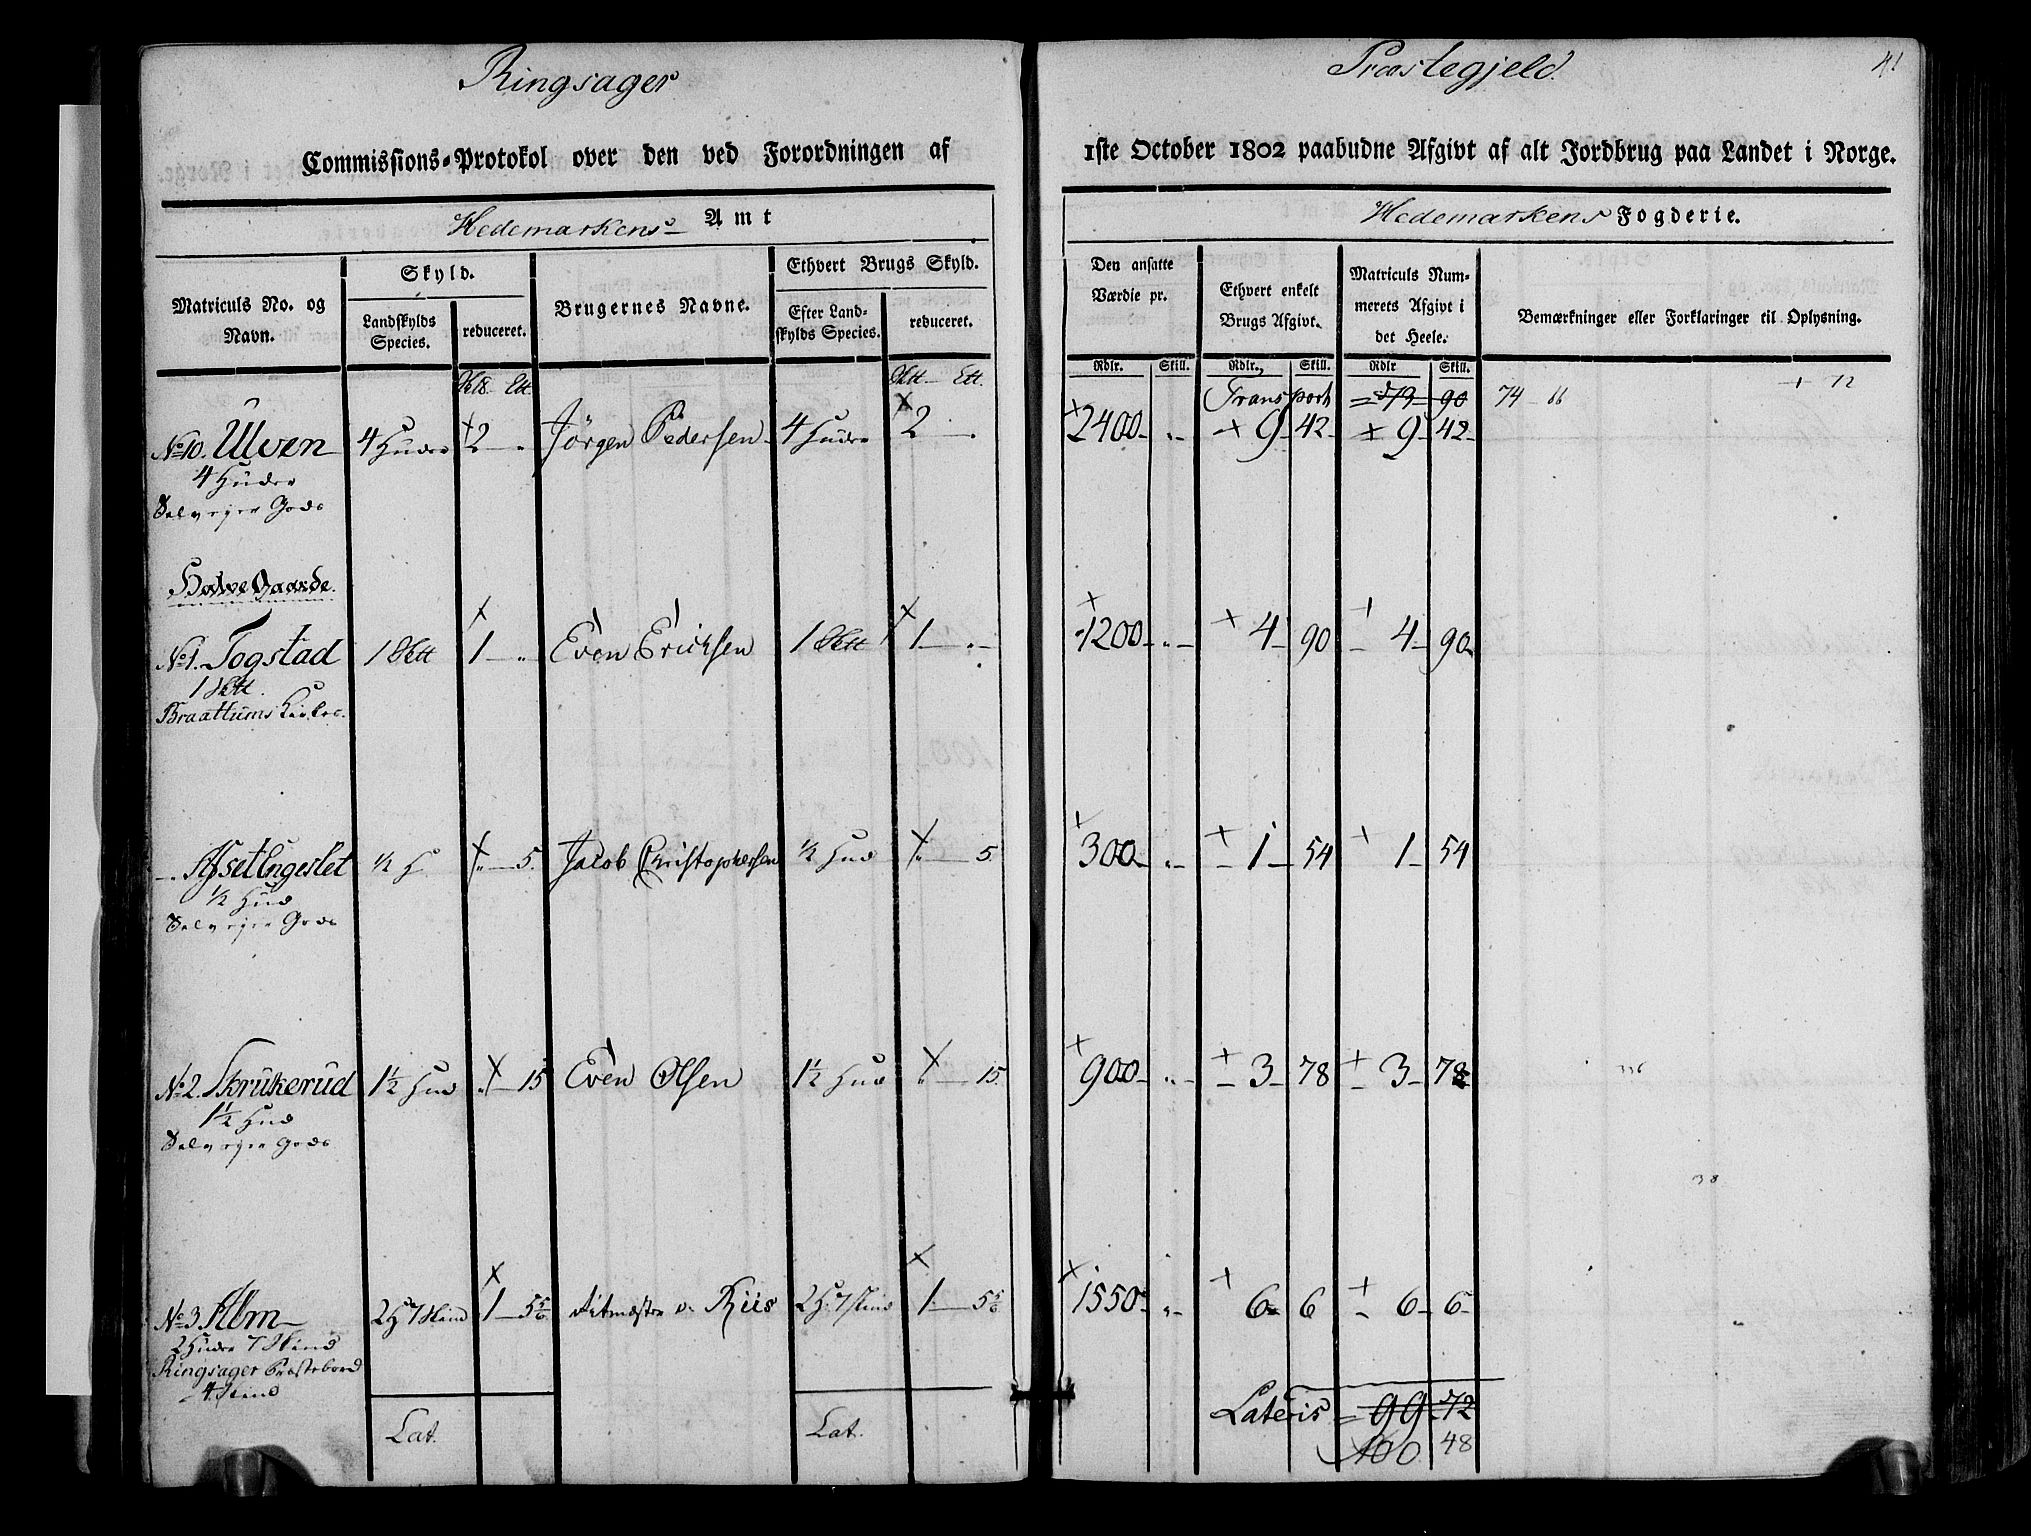 Ringsager Præstegjeld. 41
Commissions-Protokol over den ved Forordningen af 1ste October 1802 paabudne Afgivt af alt Jordbrug paa Landet i Norge.
Hedemarkens Amt Hedemarkens Fogderie.
Matriculs No. og Navn. Skyld. Brugernes Navne. Ethvert Brugs Skyld. Den ansatte Værdie pr. Ethvert enkelt Brugs Afgivt. Matriculs Nummerets Afgivt i det Heele. Bemærkninger eller Forklaringer til Oplysning.
Landskylds Species. reduceret. Efter Landskylds Species. reduceret.
Rdlr. Skill. Rdlr. Skill. Rdlr Skill.
Transport 73 90 74 66
No 10. Ulven 4 Huder 2 Jørgen Pedersen 4 Huder 2 2400 9 42 9 42
4 Huder
Selveier Gods
Halve Gaarde.
No 1. Togstad 1 Sktt 1 Even Ericksen 1 Sktt 1 1200 4 90 4 90
1 Sktt.
Braattums Kirke.
½ H 5. Jacob Christophersen ½ Hud 5. 300 1 54 1 54
½ Hud
Selveier Gods
No 2. Skrukerud 1½ Hud 15 Even Olsen 1½ Hud 15. 900 3 78 3 78
1½ Hud
Selveier Gods
No 3. Alm 2 H 7 Skind 1 5 5/6 Ritmester v. Riis 2 H 7 Skind 1 5 5/6 1550 6 6 6 6
2 Huder 7 Skind
Ringsager Præstebord
4 Skind
Lat. Lat. Lateris 99 72
100 48